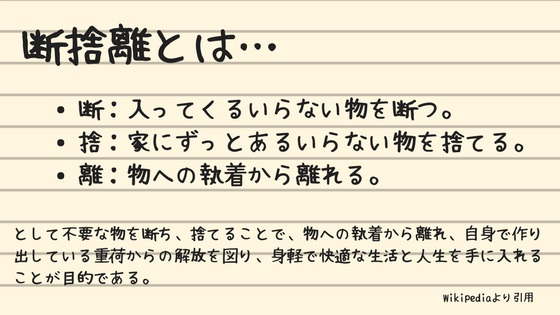 断捨離とは…
・断：入ってくるいらない物を断つ。
・捨：家にずっとあるいらない物を捨てる。
・離：物への執着から離れる。
として不要な物を断ち、捨てることで、物への執着から離れ、自身で作り
出している重荷からの解放を図り、身軽で快適な生活と人生を手に入れる
ことが目的である。
Wikipediaより引用